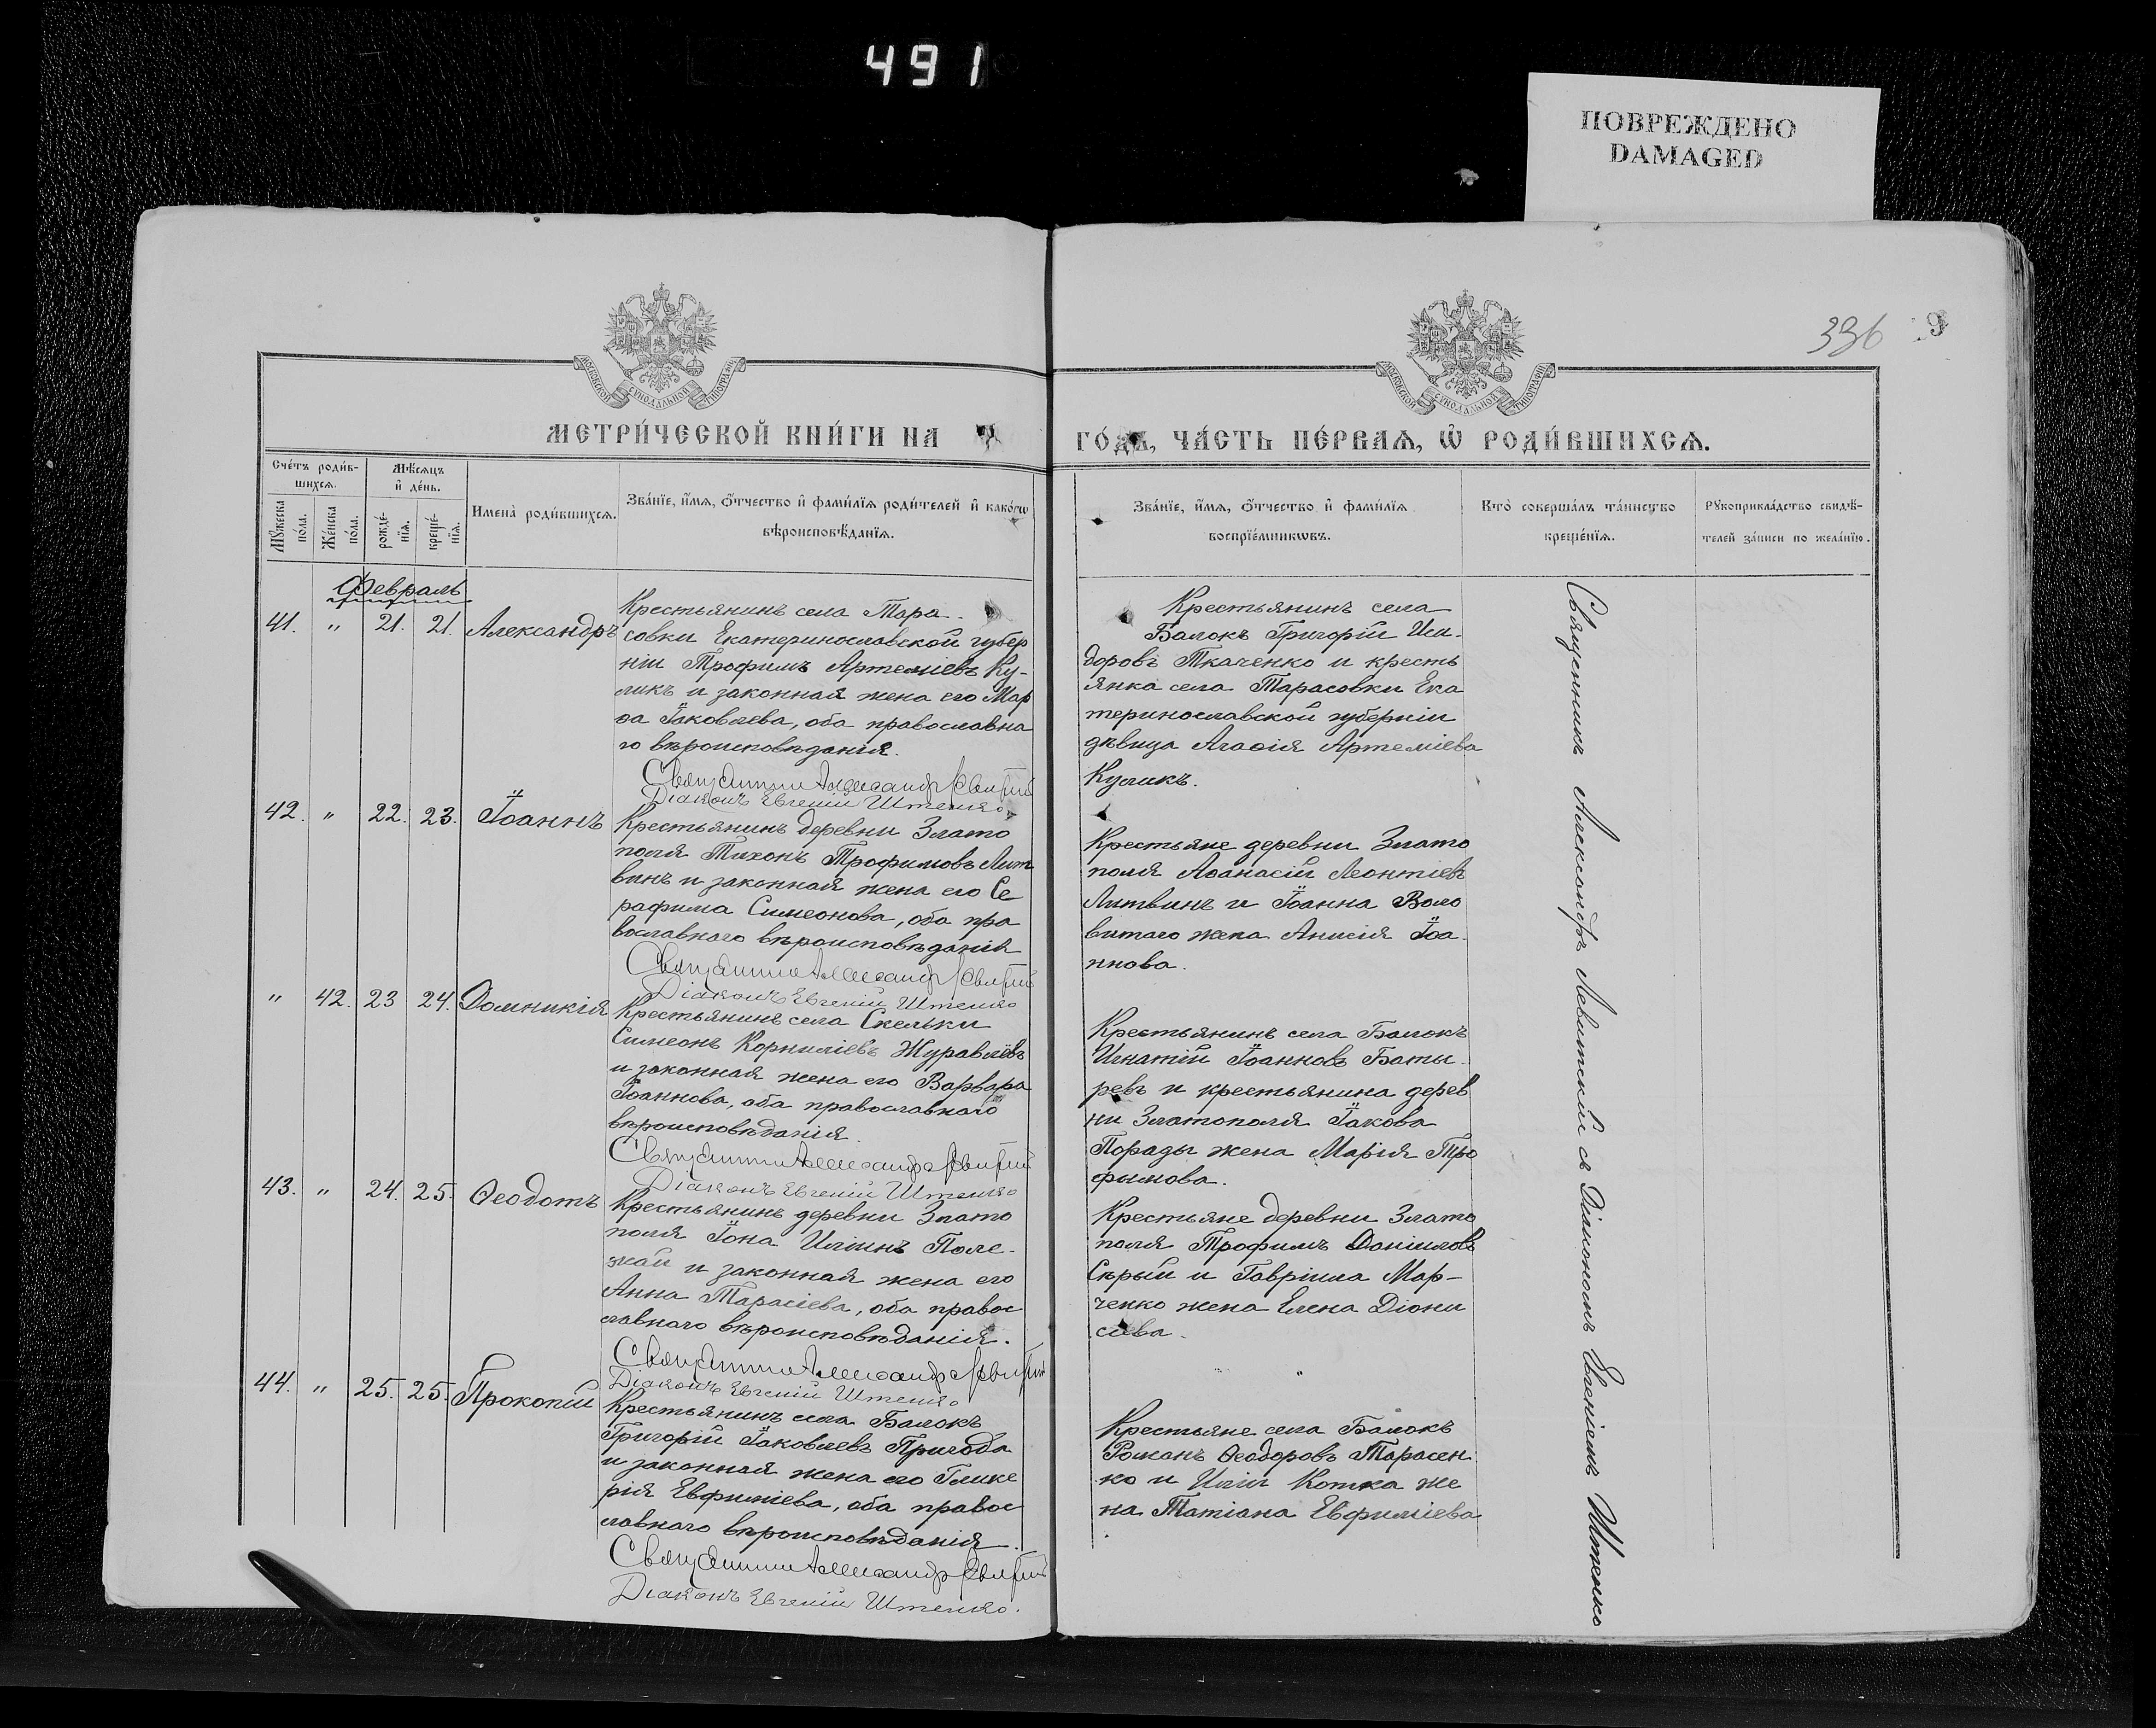 491
ПОВРЕЖДЕНО
DAMAGED
336
9
МОСКОВСКОЙ СѴНОДАЛЬНОЙ ТИПОГРАФІИ
МОСКОВСКОЙ СѴНОДАЛЬНОЙ ТИПОГРАФІИ
МЕТРИ́ЧЕСКОЙ КНИ́ГИ НА
ГО́ДЪ, ЧА́СТЬ ПЕ́РВАЯ, Ѿ РОДИ́ВШИХСЯ.
Сче́тъ роди́в-
шихся.
Мѣ́сяцъ
и҆ де́нь.
Мꙋ́жеска по́ла.
Же́нска по́ла.
рожде́-нїя.
креще́-нїя.
Имена̀ роди́вшихся.
Зва́нїе, и҆́мя, ѻ҆́тчество и҆ фами́лїя роди́телей и҆ како́гѡ
вѣроисповѣ́данїя.
Зва́нїе, и҆́мя, ѻ҆́тчество и҆ фами́лїя
воспрїе́мникѡвъ.
Кто̀ соверша́лъ та́инство
креще́нїя.
Рꙋкоприкла́дство свидѣ́-
телей за́писи по жела́нїю.
Февраль
41. " 21. 21. Александръ
Крестьянинъ села Тара-
совки Екатеринославской губер
ніи Трофимъ Артеміевъ Ку-
ликъ и законная жена его Мар
ѳа Іаковлева, оба православна
го вѣроисповѣданія.
Священникъ Александръ Левитскій
Діаконъ Евгеній Штенко
Крестьянинъ села
Балокъ Григорій Иси-
доровъ Ткаченко и кресть
янка села Тарасовки Ека
теринославской губерніи
дѣвица Агаѳія Артеміева
Куликъ.
42. " 22. 23. Іоаннъ
Крестьянинъ деревни Злато
поля Тихонъ Трофимовъ Лит
винъ и законная жена его Се
рафима Симеонова, оба пра
вославнаго вѣроисповѣданія
Священникъ Александръ Левитскій
Діаконъ Евгеній Штенко
Крестьяне деревни Злато
поля Аѳанасій Леонтіевъ
Литвинъ и Іоанна Воло
витаго жена Анисія Іоа-
ннова.
" 42. 23 24. Домникія
Крестьянинъ села Скельки
Симеонъ Корниліевъ Журавлёвъ
и законная жена его Варвара
Іоаннова, оба православнаго
вѣроисповѣданія.
Священникъ Александръ Левитскій
Діаконъ Евгеній Штенко
Крестьянинъ села Балокъ
Игнатій Іоанновъ Баты-
ревъ и крестьянина дерев
ни Златополя Іакова
Порады жена Марія Тро
фимова.
43. " 24. 25. Ѳеодотъ
Крестьянинъ деревни Злато
поля Іона Иліинъ Поле-
жай и законная жена его
Анна Тарасіева, оба правос
лавнаго вѣроисповѣданія.
Священникъ Александръ Левитскій
Діаконъ Евгеній Штенко
Крестьяне деревни Злато
поля Трофимъ Даніиловъ
Сѣрый и Гавріила Мар-
ченко жена Елена Діони
сіева.
44. " 25. 25. Прокопій
Крестьянинъ села Балокъ
Григорій Іаковлевъ Пригода
и законная жена его Глике
рія Евфиміева, оба правос
лавнаго вѣроисповѣданія.
Священникъ Александръ Левитскій
Діаконъ Евгеній Штенко.
Крестьяне села Балокъ
Романъ Ѳеодоровъ Тарасен
ко и Иліи Котка же
на Татіана Евфиміева
Священникъ Александръ Левитскій съ Діакономъ Евгеніемъ Штенко